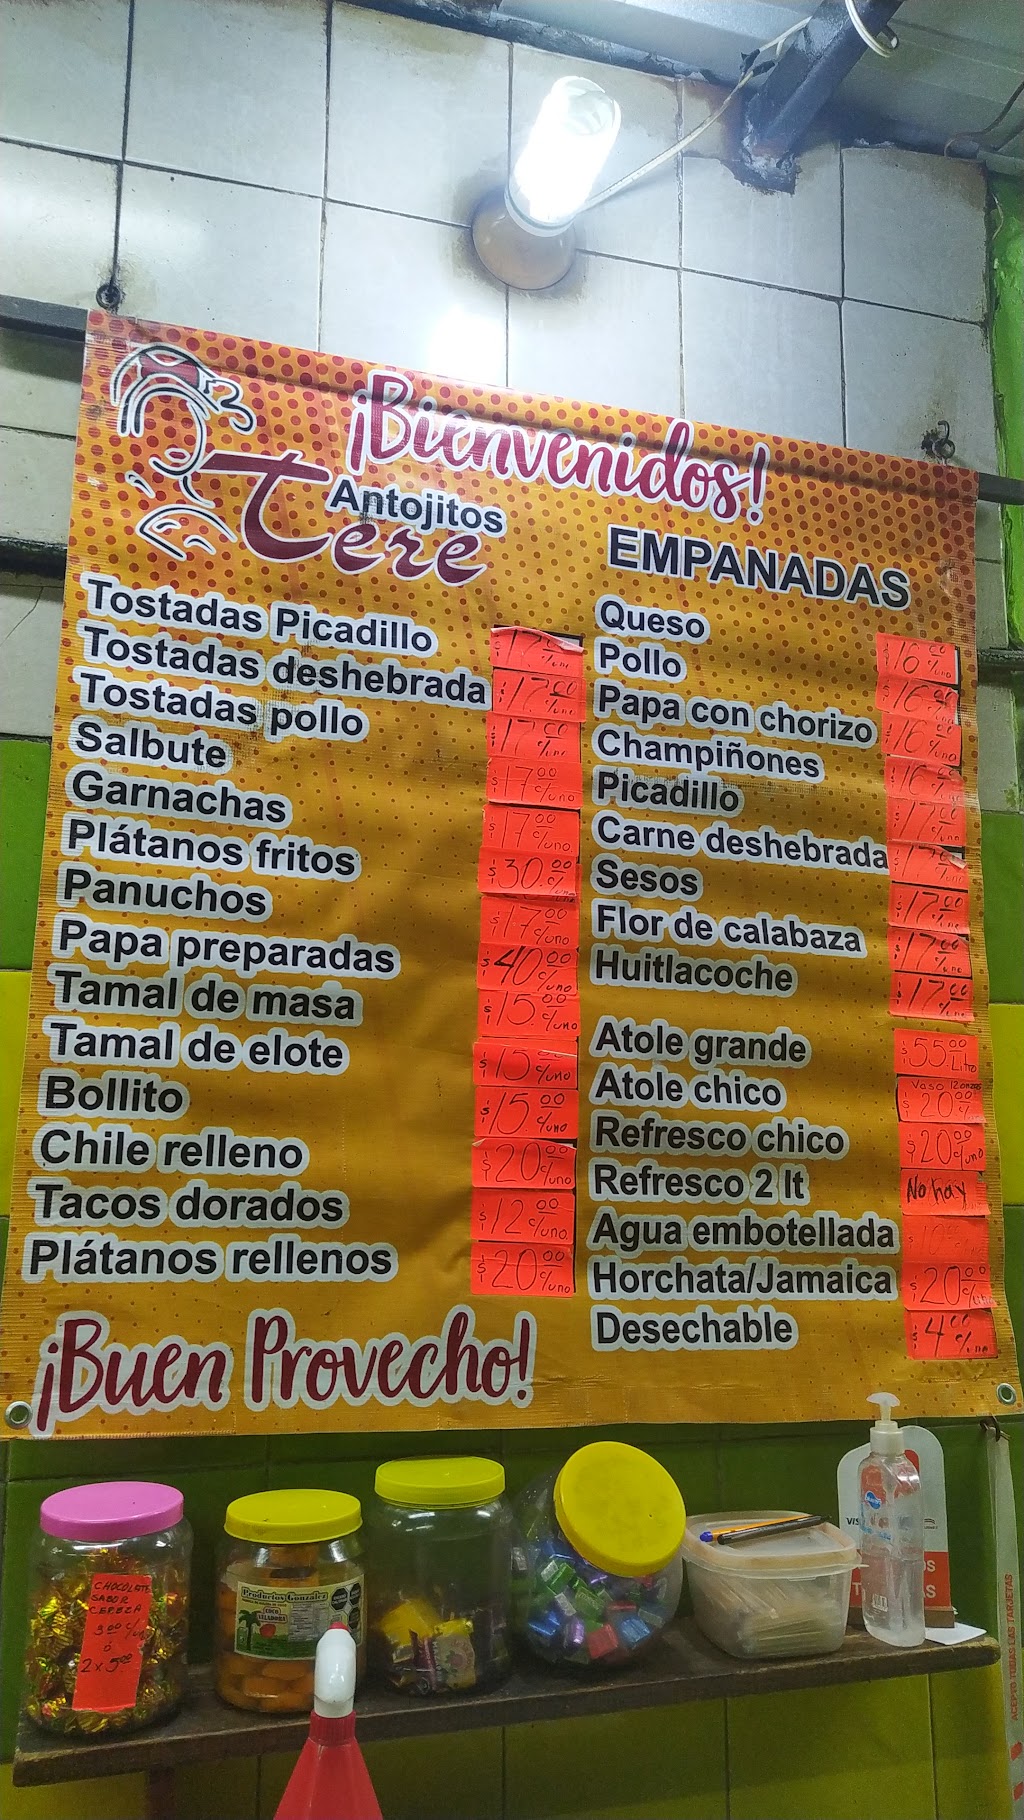 ¡Bienvenidos!
Antojitos
Tere
Tostadas Picadillo $17.00 c/uno
Tostadas deshebrada $17.00 c/uno
Tostadas pollo $17.00 c/uno
Salbute $17.00 c/uno
Garnachas $17.00 c/uno
Plátanos fritos $30.00 c/uno
Panuchos $17.00 c/uno
Papa preparadas $40.00 c/uno
Tamal de masa $15.00 c/uno
Tamal de elote $15.00 c/uno
Bollito $15.00 c/uno
Chile relleno $20.00 c/uno
Tacos dorados $12.00 c/uno
Plátanos rellenos $20.00 c/uno
¡Buen Provecho!
EMPANADAS
Queso $16.00 c/uno
Pollo $16.00
Papa con chorizo $16.00 c/uno
Champiñones $16.00
Picadillo $17.00 c/uno
Carne deshebrada $17.00 c/uno
Sesos $17.00 c/uno
Flor de calabaza $17.00 c/uno
Huitlacoche $17.00 c/uno
Atole grande $55.00 Litro
Atole chico Vaso 12 onzas $20.00
Refresco chico $20.00 c/uno
Refresco 2 lt No hay
Agua embotellada
Horchata/Jamaica $20.00
Desechable $4.00 c/uno
CHOCOLATE
SABOR
CEREZA
3.00 c/uno
ó
2x5.00
Productos Gonzalez
COCO
ACEPTO TODAS LAS TARJETAS